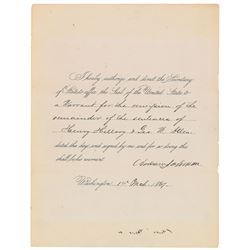 I hereby authorize and direct the Secretary
of State to affix the Seal of the United States to
a Warrant for the remission of the
remainder of the sentence of
Henry Hillory & Geo. W. Allen
dated this day, and signed by me and for so doing this
shall be his warrant.
Andrew Johnson
Washington, 1st Mch. 1867.